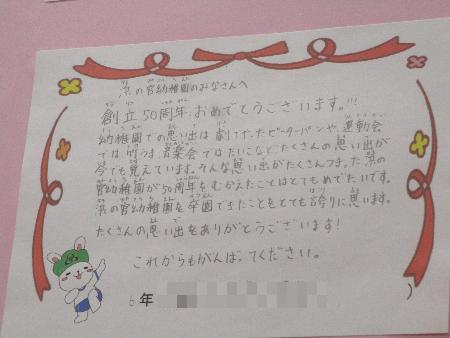 浜の宮幼稚園のみなさんへ
創立50周年、おめでとうございます。!!!
幼稚園での思い出は劇でやったピーターパンや、運動会
では竹うま、音楽会ではたいこなどたくさんの思い出が
今でも覚えています。そんな思い出がたくさんつまった浜の
宮幼稚園が50周年をむかえたことはとてもめでたいです。
浜の宮幼稚園を卒園できたことをとても誇りに思います。
たくさんの思い出をありがとうございます!
これからもがんばってください。
6年